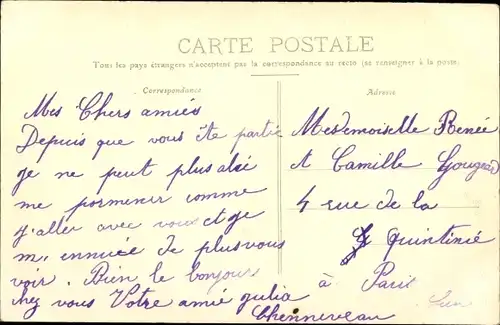 CARTE POSTALE
Tous les pays étrangers n'acceptent pas la correspondance au recto (se renseigner à la poste)
Correspondance
Adresse
Mes Chers amiés
Depuis que vous éte partie
je ne peut plus
me pormener comme
j'aller avec vous et je
m, ennuiée de plus vous
voir. Bien le bonjour
chez vous Votre amié julia
Chenneveau
Mesdemoiselle Renée
et Camille Gougeard
4 rue de la
Quintinié
à Paris